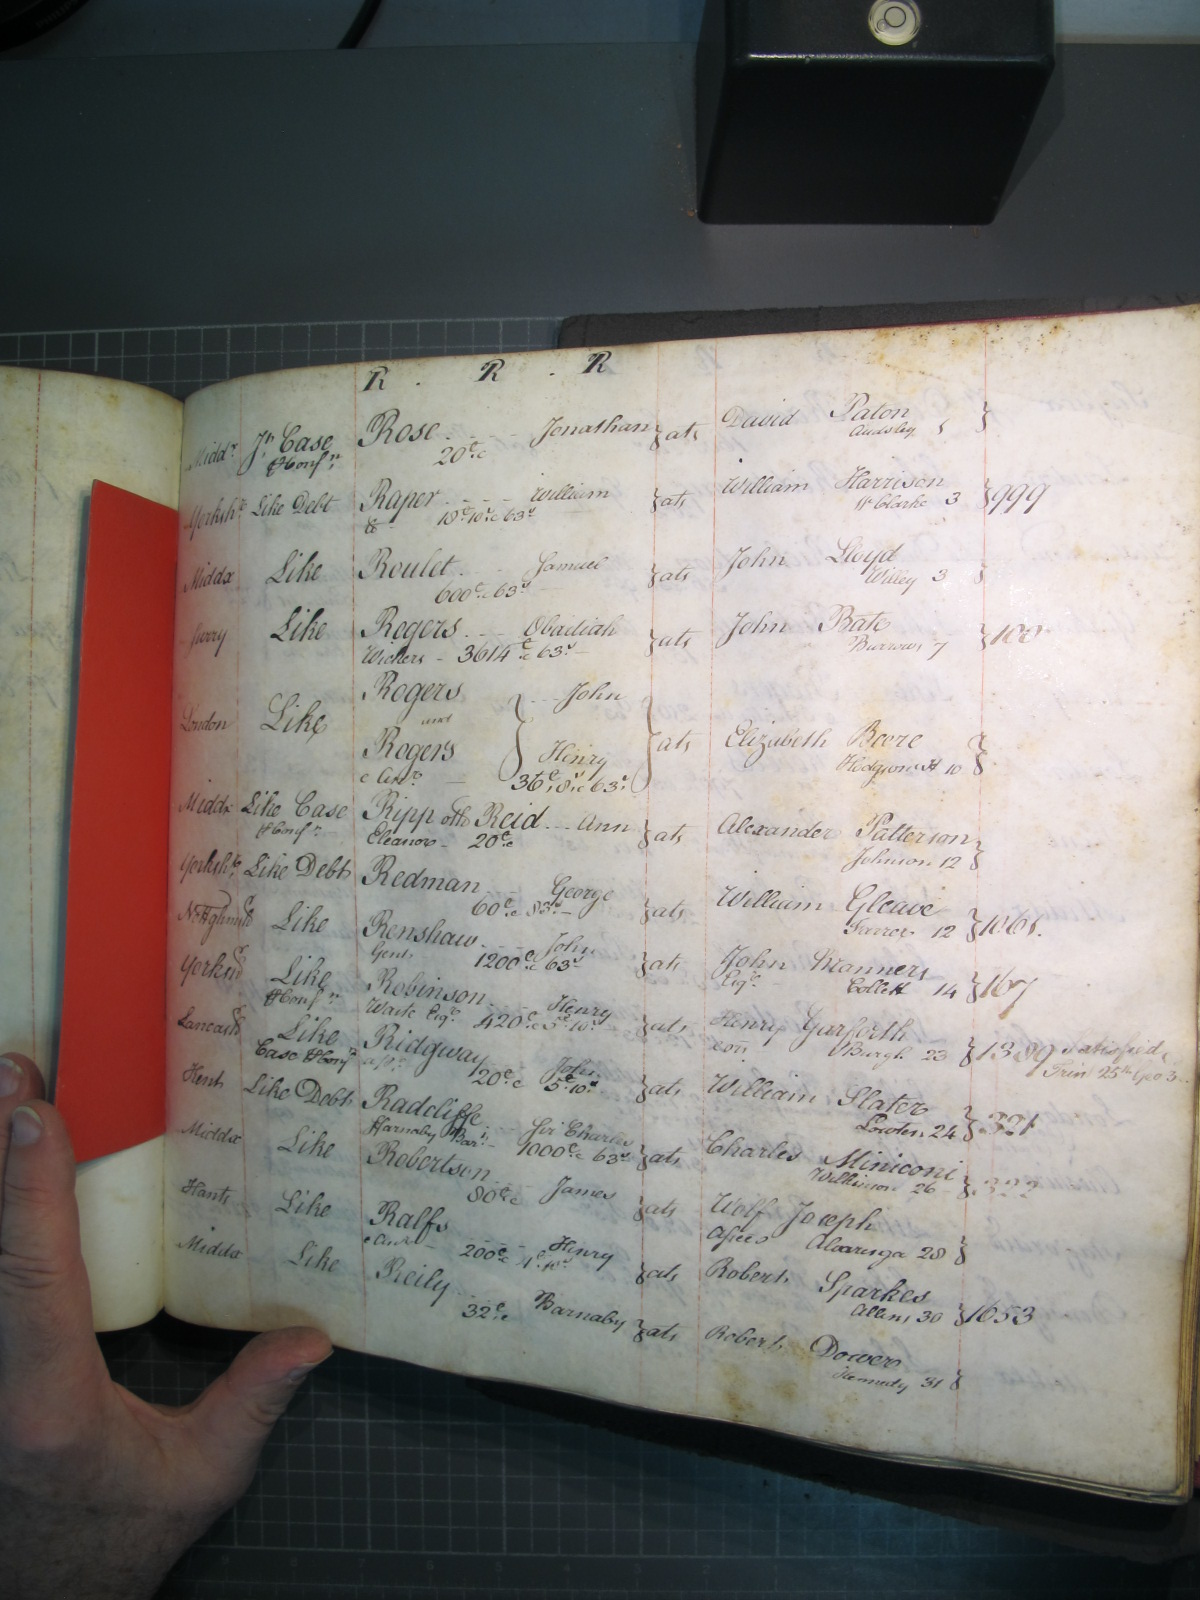 R . R . R
Middx Jn Case Rose Jonathan } ats David Paton }
& Conf n 20£ c Audsley 1
Yorksh Like Debt Raper William } ats William Harrison } 999
& 18£ 10s c 63s W Clarke 3
Middx Like Roulet Samuel } ats John Lloyd }
600£ c 63s Willey 3
Surry Like Rogers Obadiah } ats John Bate } 100
Wickers 3614£ c 63s Burrows 7
London Like Rogers John
and } ats Elizabeth Beere }
Rogers Henry Hodgson 10
36£ 8s c 63s
Middx Like Case Ripp oth Reid Ann } ats Alexander Patterson }
& Conf n Eleanor 20£ c Johnson 12
Yorksh Like Debt Redman George } ats William Gleave } 1061.
60£ c 83s 12
Like Renshaw John } ats John Manners } 167
Gent 1200£ c 63s Esqr Collett 14
Yorksh Like Robinson Henry } ats Henry Garforth } 1389 Satisfied
& Conf n Waite Esqr 420£ c 5£ 10s Burgh 23 Trin 25th Geo 3
Lancash Like Ridgway John } ats William Slater } 321
Case & Conf n 20£ c 5£ 10s Lowten 24
Kent Like Debt Radcliffe Sir Charles } ats Charles Miniconi } 322
Farnaby Bart 1000£ c 63s Wilkinson 26
Middx Like Robertson James } ats Wolf Joseph }
80£ c Alvarenga 28
Hants Like Ralfs Henry } ats Robert Sparkes } 1653
200£ c Allen 30
Middx Like Reily Barnaby } ats Robert Dower }
32£ c Kennedy 31